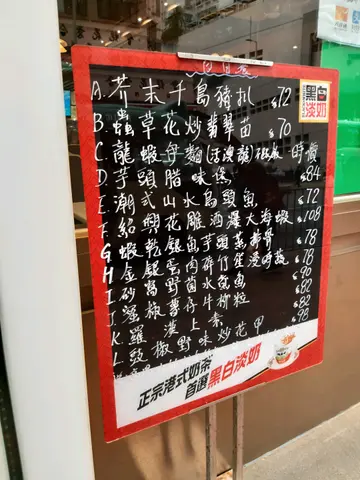 A. 芥末千島豬扒 $72
B. 蟲草花炒翡翠苗 $70
C. 龍蝦伊麵(活澳龍) 時價
D. 芋頭腊味煲 $84
E. 潮式山水烏頭魚 $72
F. 紹興花雕酒灑大海蝦 $108
G. 蝦乾銀魚芋頭蒸 $78
H. 金銀蛋肉碎竹笙浸時蔬 $78
I. 砂窩野菌水魚 $90
J. 蜜椒薯仔牛柳粒 $82
K. 羅漢上素 $82
L. 豉椒野味炒花甲 $98
正宗港式奶茶
首選黑白淡奶
黑白
淡奶